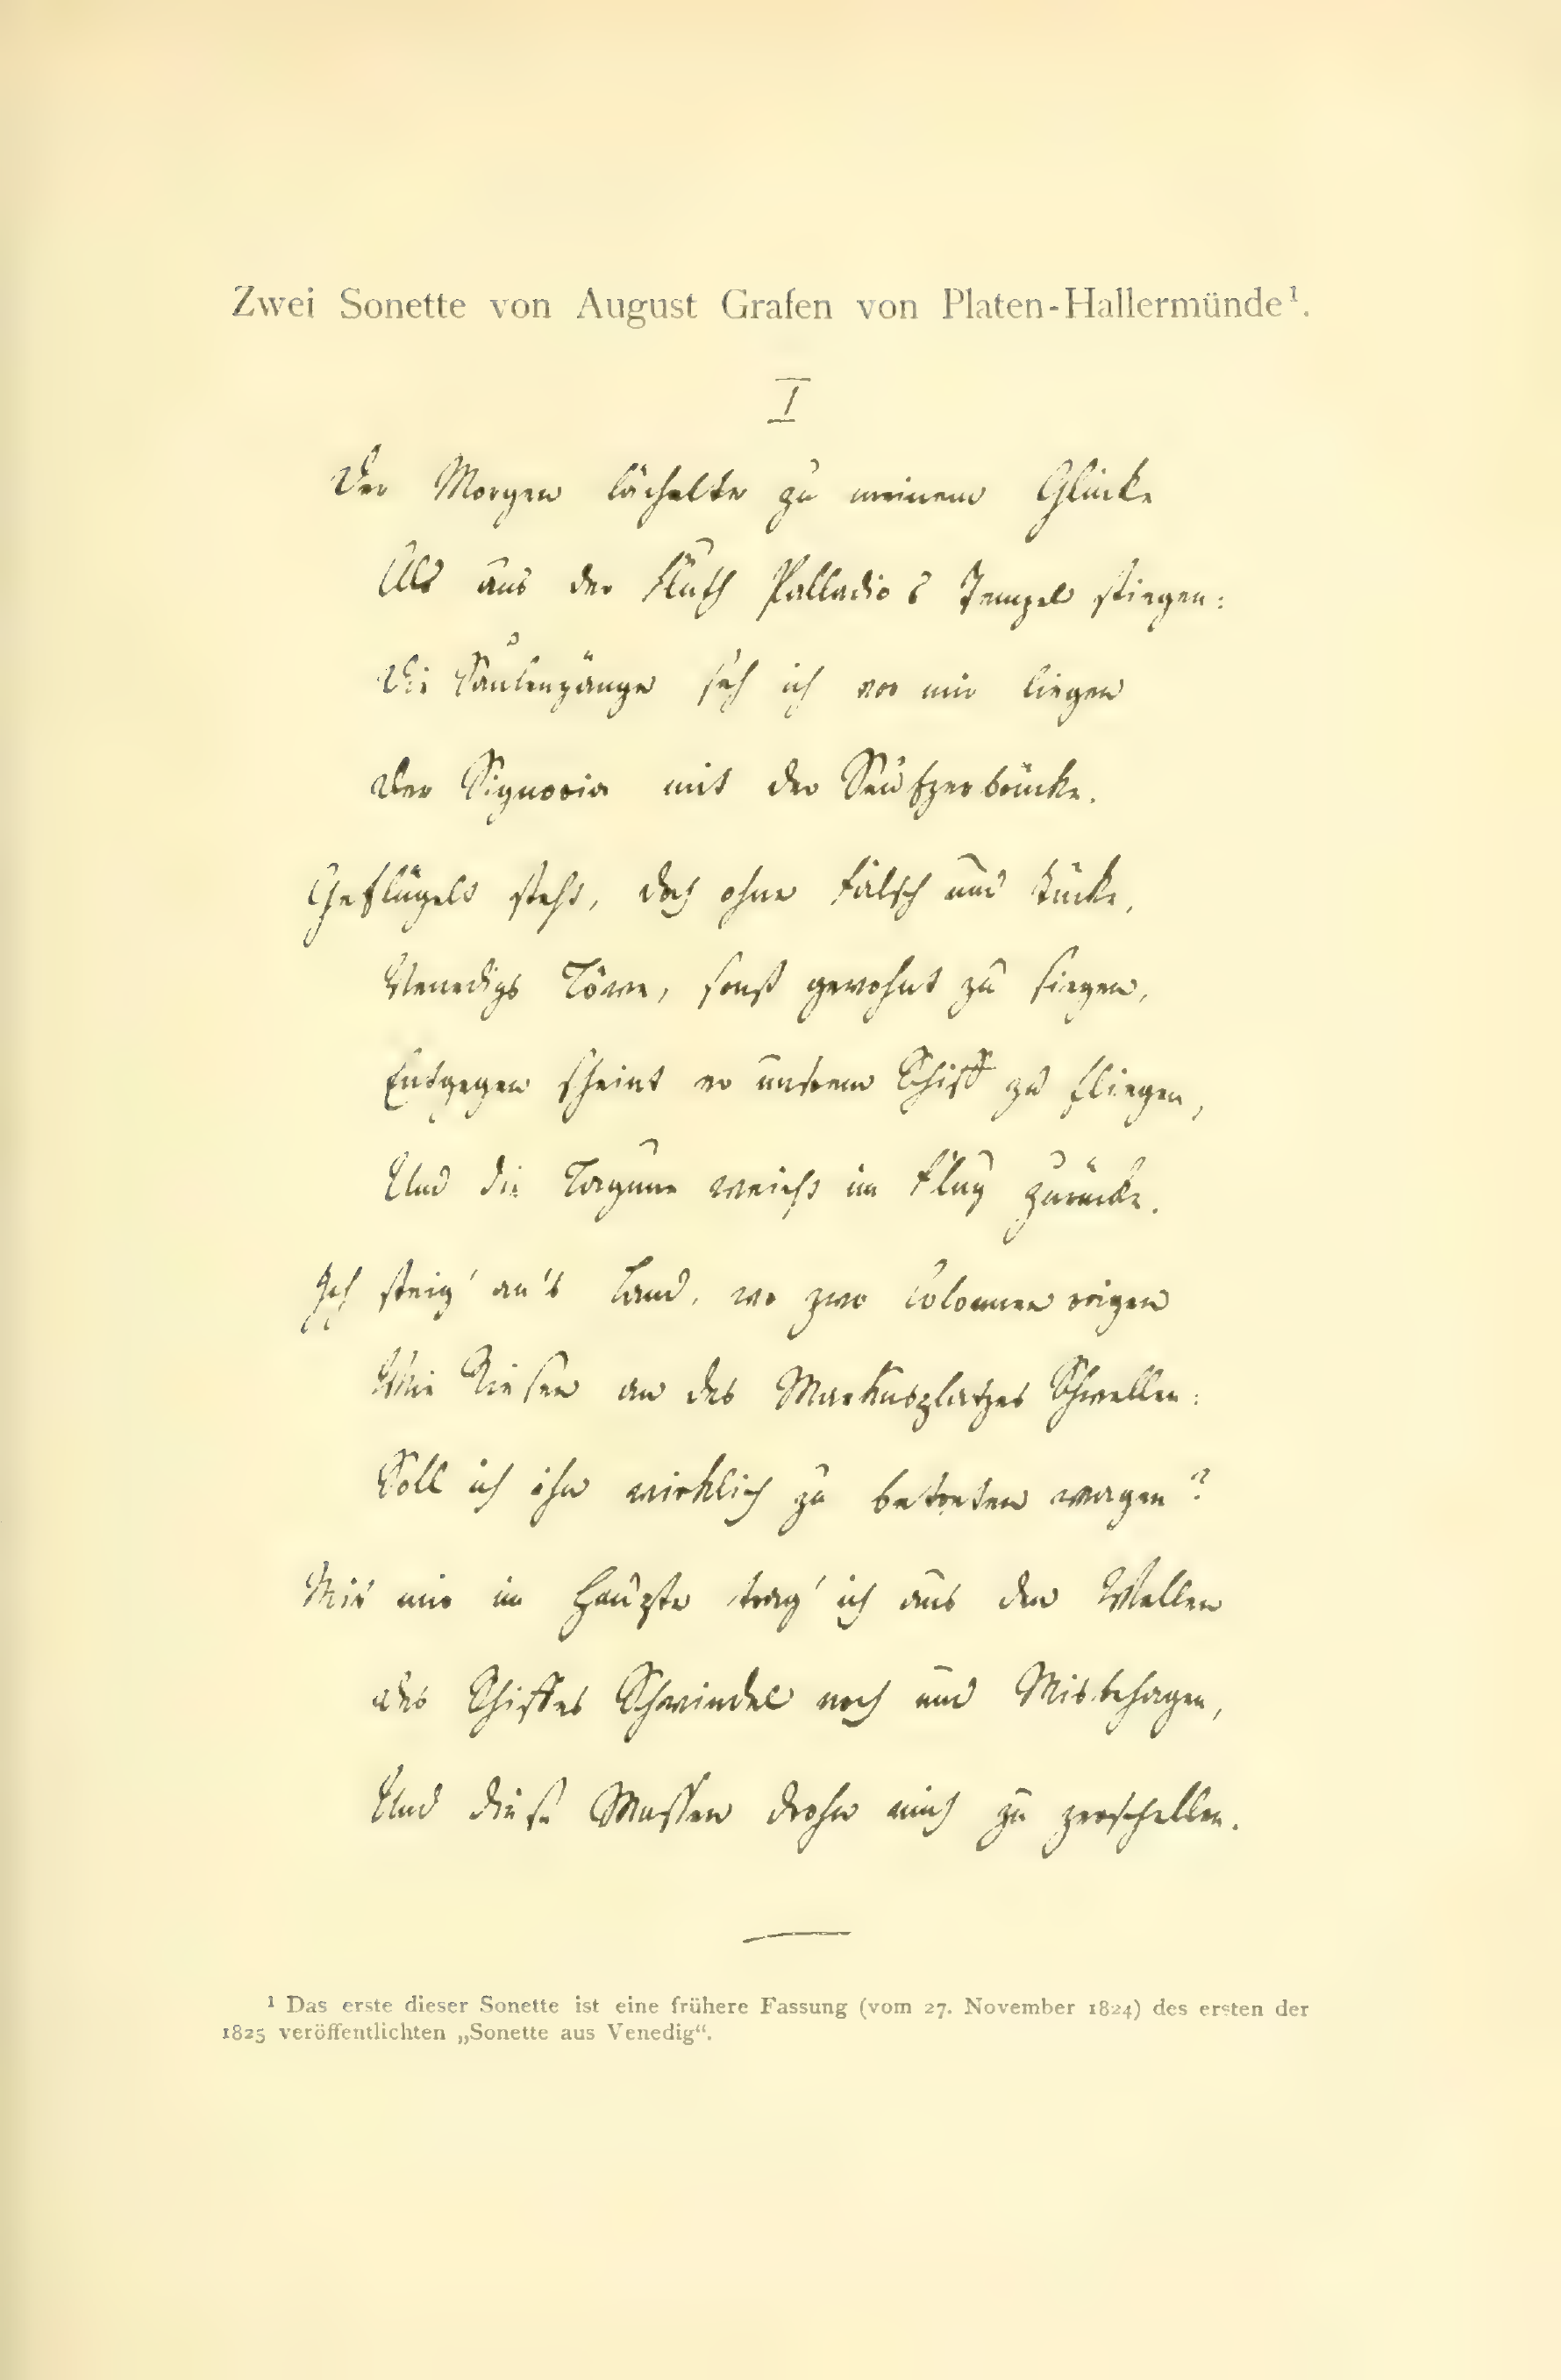 Zwei Sonette von August Grafen von Platen-Hallermünde¹.
I
Der Morgen lächelte zu meinem Glücke
Als aus der Fluth Palladio's Tempel stiegen:
Die Säulengänge sah ich vor mir liegen
Der Signoria mit der Seufzerbrücke.
Geflügelt steht, doch ohne Falsch und Tücke,
Venedigs Löwe, sonst gewohnt zu siegen,
Entgegen scheint er unsrem Schiff zu fliegen,
Und die Lagune weicht im Flug zurücke.
Ich steig' an's Land, wo zwo Colonnen ragen
Wie Riesen an des Markusplatzes Schwellen:
Soll ich ihn wirklich zu betreten wagen?
Mit mir im Haupte trag' ich aus den Wellen
Des Schiffes Schwindel noch und Misbehagen,
Und diese Massen drohn mich zu zerschellen.
¹ Das erste dieser Sonette ist eine frühere Fassung (vom 27. November 1824) des ersten der
1825 veröffentlichten „Sonette aus Venedig“.